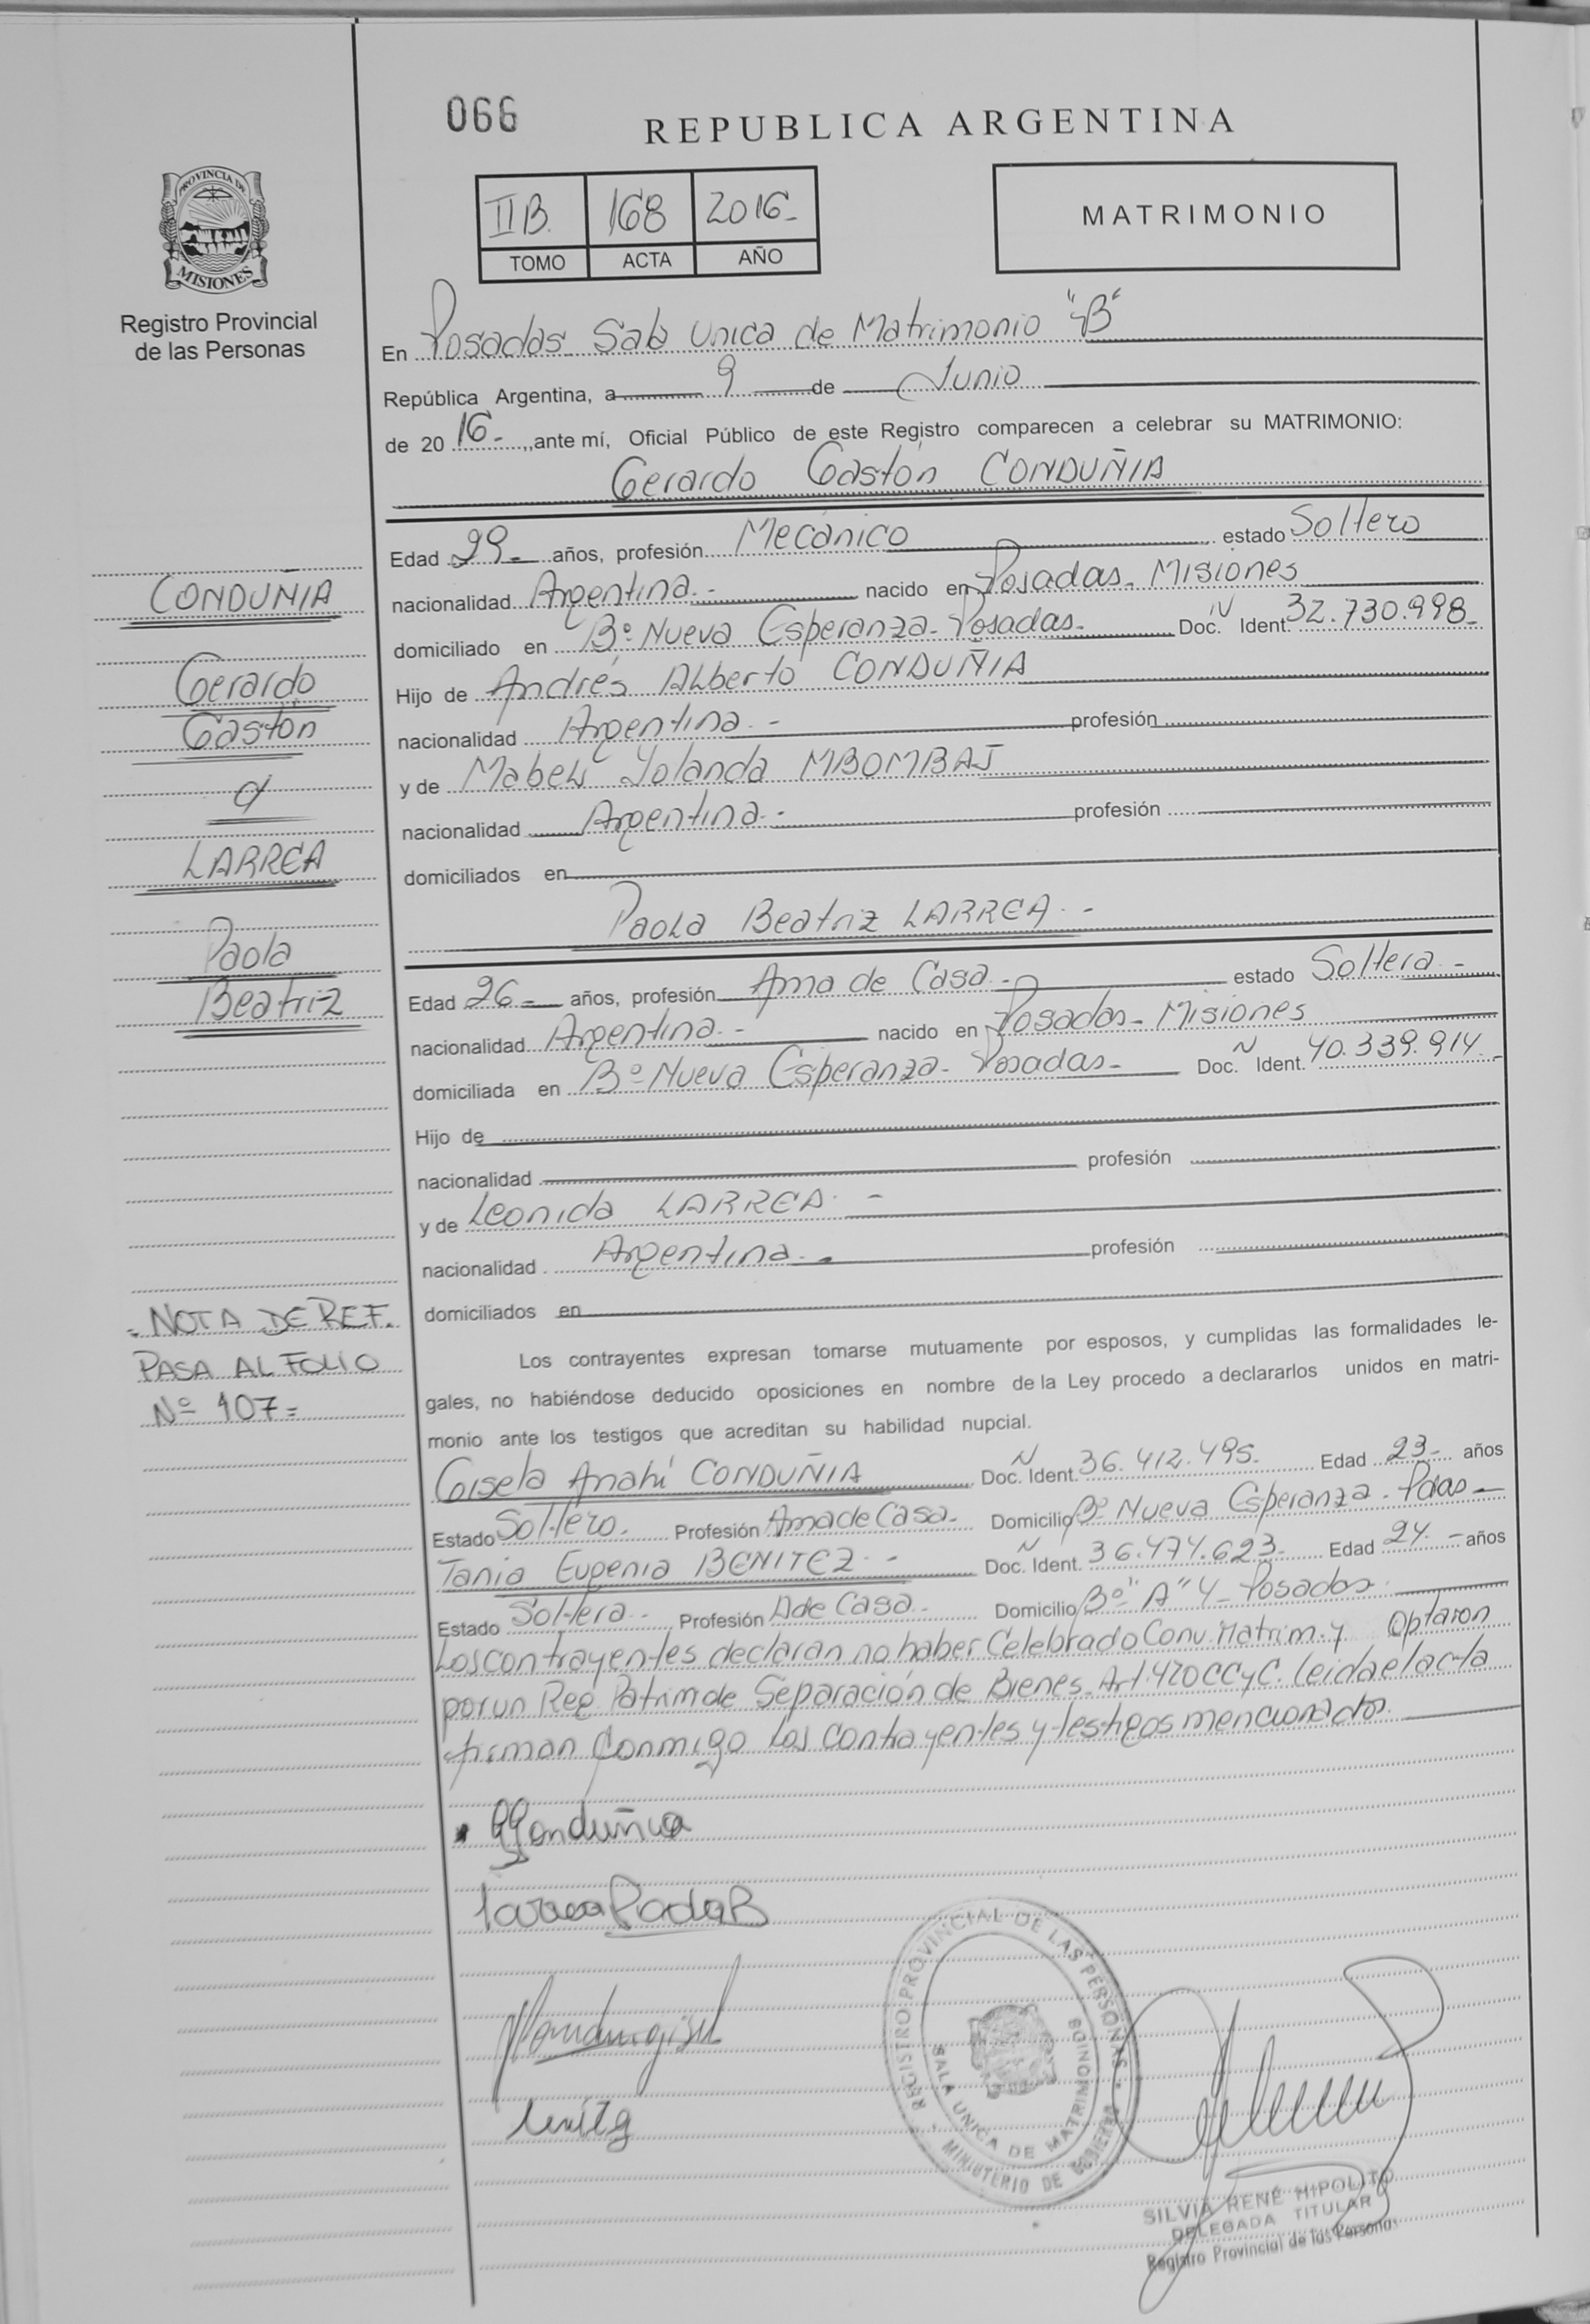 066
REPUBLICA ARGENTINA
IIB. 168 2016-
TOMO ACTA AÑO
MATRIMONIO
PROVINCIA DE
MISIONES
Registro Provincial
de las Personas
En Posadas Sala Unica de Matrimonio "B"
República Argentina, a 9 de Junio
de 2016-, ante mí, Oficial Público de este Registro comparecen a celebrar su MATRIMONIO:
Gerardo Gastón CONDUÑIA
Edad 29- años, profesión Mecánico estado Soltero
nacionalidad Argentina.- nacido en Posadas- Misiones
domiciliado en Bº Nueva Esperanza- Posadas- Doc. N Ident. 32.730.998-
Hijo de Andrés Alberto CONDUÑIA
nacionalidad Argentina.- profesión
y de Mabel Yolanda MBOMBAJ
nacionalidad Argentina.- profesión
domiciliados en
Paola Beatriz LARREA.-
Edad 26- años, profesión Ama de Casa.- estado Soltera.-
nacionalidad Argentina.- nacido en Posadas- Misiones
domiciliada en Bº Nueva Esperanza- Posadas- Doc. N Ident. 40.339.914.-
Hijo de
nacionalidad profesión
y de Leonida LARREA.-
nacionalidad Argentina.- profesión
domiciliados en
Los contrayentes expresan tomarse mutuamente por esposos, y cumplidas las formalidades le-
gales, no habiéndose deducido oposiciones en nombre de la Ley procedo a declararlos unidos en matri-
monio ante los testigos que acreditan su habilidad nupcial.
Gisela Anahí CONDUÑIA Doc. N Ident. 36.412.495. Edad 23- años
Estado Soltero. Profesión Ama de Casa- Domicilio Bº Nueva Esperanza- Pdas-
Tania Eugenia BENITEZ.- Doc. N Ident. 36.474.623- Edad 24.- años
Estado Soltera- Profesión A de Casa- Domicilio Bº "A" 4- Posadas.
Los contrayentes declaran no haber Celebrado Conv. Matrim. y Optaron
por un Reg. Patrim de Separación de Bienes- Art. 420 CCyC. Leida el acta
firman Conmigo los contrayentes y testigos mencionados.
CONDUÑIA
Gerardo
Gastón
c/
LARREA
Paola
Beatriz
- NOTA DE REF.
PASA AL FOLIO
Nº 107=
Larrea Paola B
REGISTRO PROVINCIAL DE LAS PERSONAS
MINISTERIO DE GOBIERNO
SALA UNICA DE MATRIMONIOS
SILVIA RENÉ HIPOLITO
DELEGADA TITULAR
Registro Provincial de las Personas